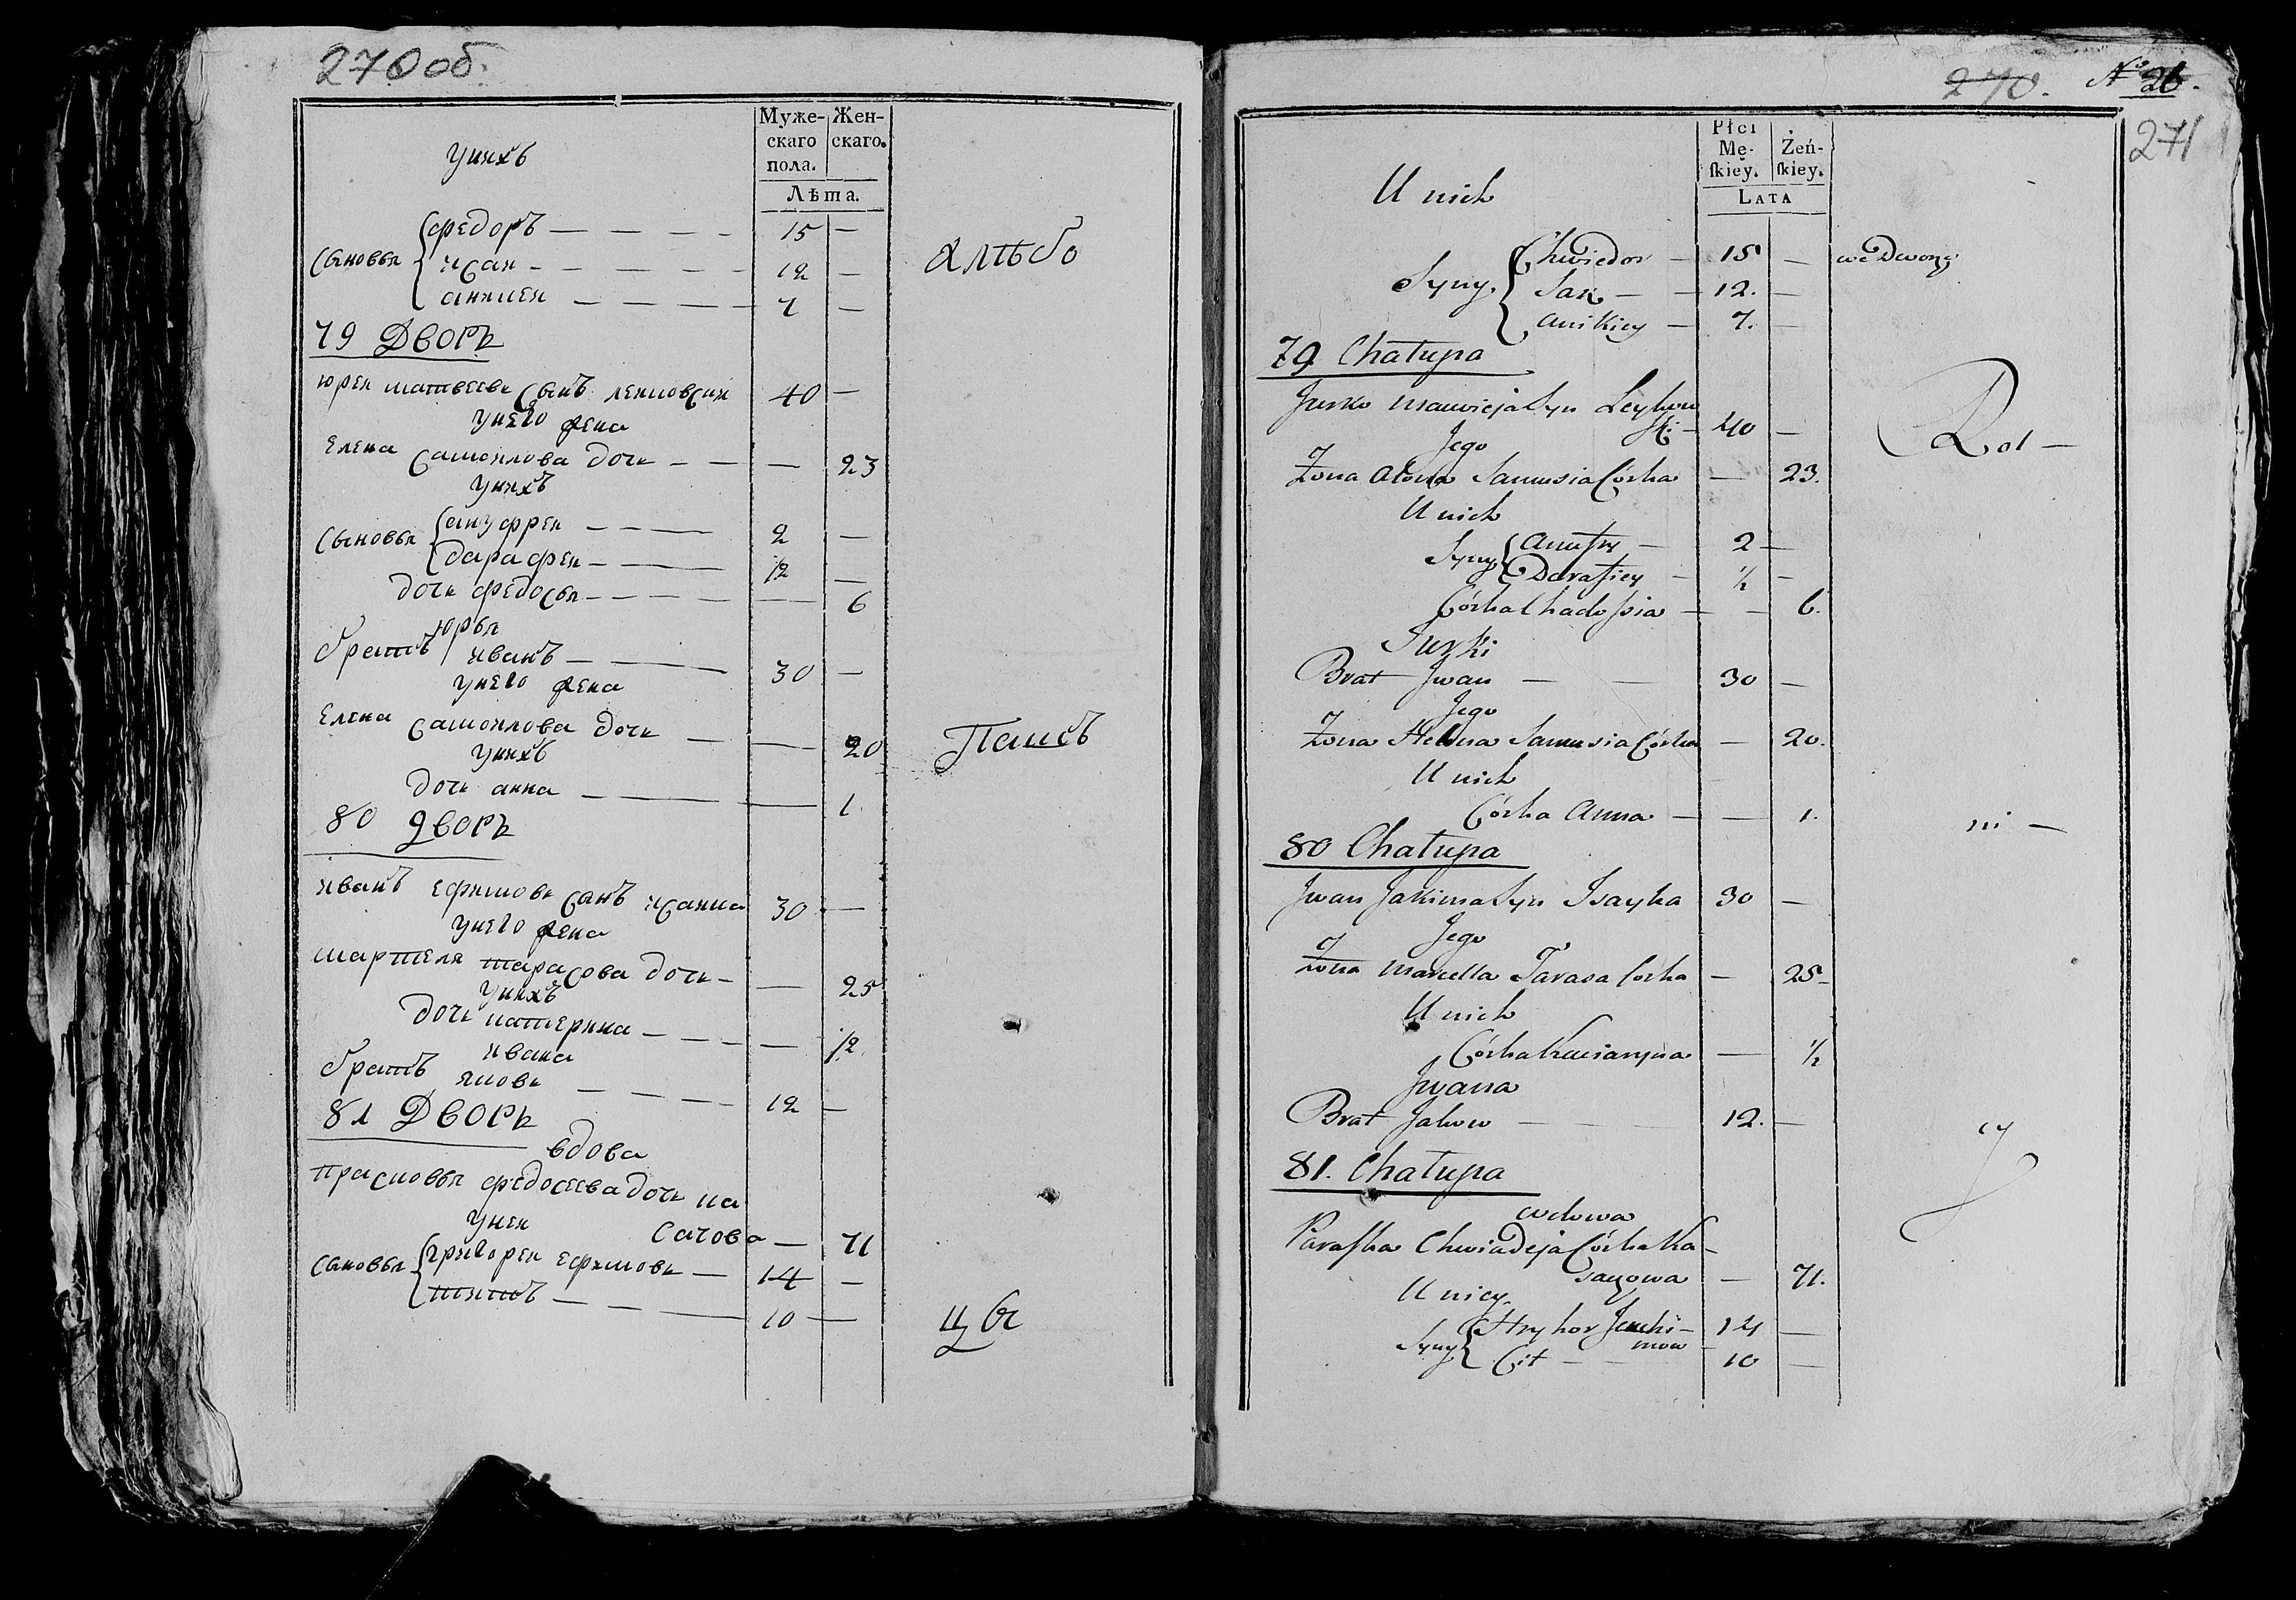 270об.
Муже-
скаго
пола.
Жен-
скаго.
Лѣта.
унихъ
сыновья
федоръ — — — — 15 —
исаи — — — — — 12 —
аникеи — — — — 7 —
79 Дворъ
юреи матвеевъ сынъ леиковски 40 —
унего жена
елена самоилова дочь — — — 23
унихъ
сыновья
ануфреи — — — 2 —
дарафеи — — — — ½ —
дочь федосья — — — — — 6
юрья
братъ иванъ — — — 30 —
унего жена
елена самоилова дочь — — 20
унихъ
дочь анна — — — — 1
80 дворъ
иванъ ефимовъ сынъ исаика 30 —
унего жена
марцеля тарасова дочь — — 25
унихъ
дочь катерина — — — — — ½
ивана
братъ яковъ — — — — 12 —
81 Дворъ
вдова
прасковья федосеева дочь ка
сачова — 71
унеи
сыновья
григореи ефимовъ — 14 —
титъ — — — — 10 —
270. No 26.
271
Płci
Mę-
skiey.
Żeń-
skiey.
LATA
U nich
Syny
Chwiedor — 15 — we Dworze
Isax — — 12. —
Anikiey — 7. —
79 Chałupa
Jurko Macwieja Syn Leykow
ski — 40 —
Jego
Żona Alona Samusia Córka — 23.
U nich
Syny
Anufry — 2 —
Darafiey — ½ —
Córka Chadosia — — 6.
Jurki
Brat Jwan — — 30 —
Jego
Żona Helena Samusia Córka — 20.
U nich
Córka Anna — — 1.
80 Chałupa
Jwan Jakima Syn Isayka 30 —
Jego
Żona Marcella Tarasa Corka — 25 —
U nich
Córka Kaciaryna — ½
Jwana
Brat Jakow — — — 12. —
81. Chałupa
wdowa
Paraska Chwiadeja Córka Ka-
saczowa — 71.
U niey
Syny
Hryhor Jachi- 14 —
mow
Cit — — 10 —